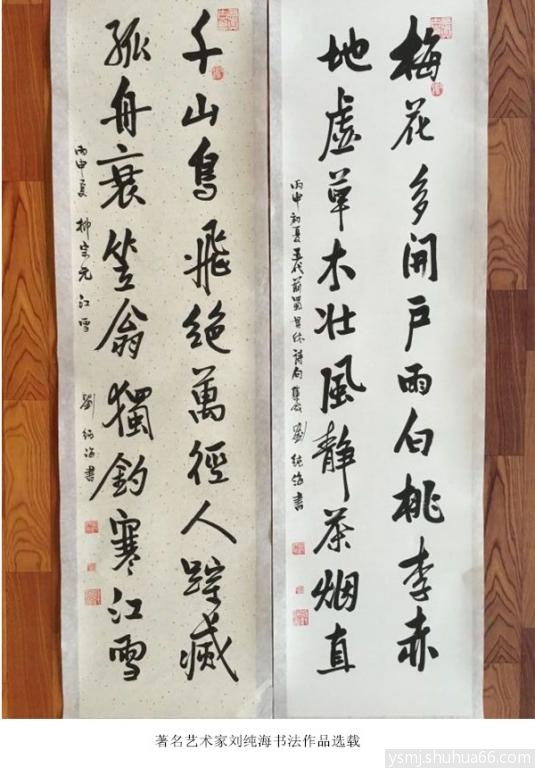 梅花多開戶雨白桃李赤
地虛草木壯風靜茶烟直
丙申初夏五代前蜀貫休詩句集成 劉純海書
千山鳥飛絕萬徑人踪滅
孤舟衰笠翁獨釣寒江雪
丙申夏 柳宗元 江雪 劉純海書
著名艺术家刘纯海书法作品选载
ysmj.shuhua66.com